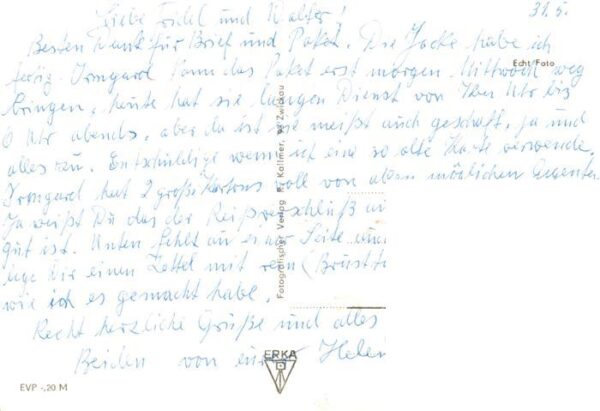 Liebe Friedel und Walter! 31.5.
Besten Dank für Brief und Paket. Die Jacke habe ich
fertig. Irmgard kann das Paket erst morgen Mittwoch weg
Echt Foto
bringen, heute hat sie langen Dienst von Uhr bis
6 Uhr abends, aber da ist sie meißt auch geschafft, ja und
alles zu. Entschuldige wenn ich eine so alte Karte verwende.
Irmgard hat 2 große Kartons voll von allen möglichen
Ja weißt Du das der Reißverschluß
gut ist. Unten fehlt an einer Seite
lege Dir einen Zettel mit rein
wie ich es gemacht habe.
Recht herzliche Grüße und alles
Beiden von
Fotografischer Verlag R. Kallmer, Zwickau
ERKA
EVP -,20 M